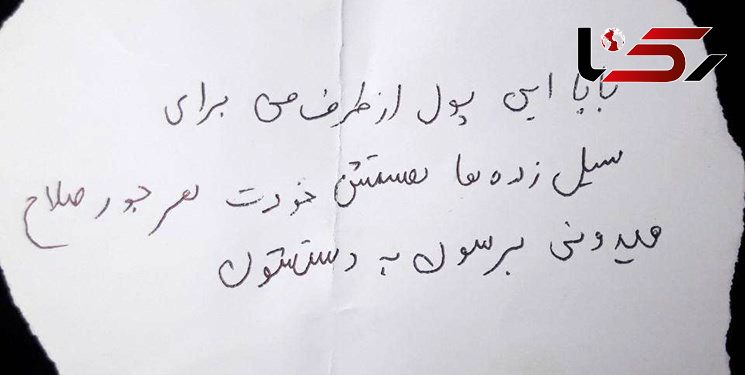 رکنا
بابا این پول از طرف من برای
سیل زده ها هستش خودت هر جور صلاح
میدونی برسون به دستشون